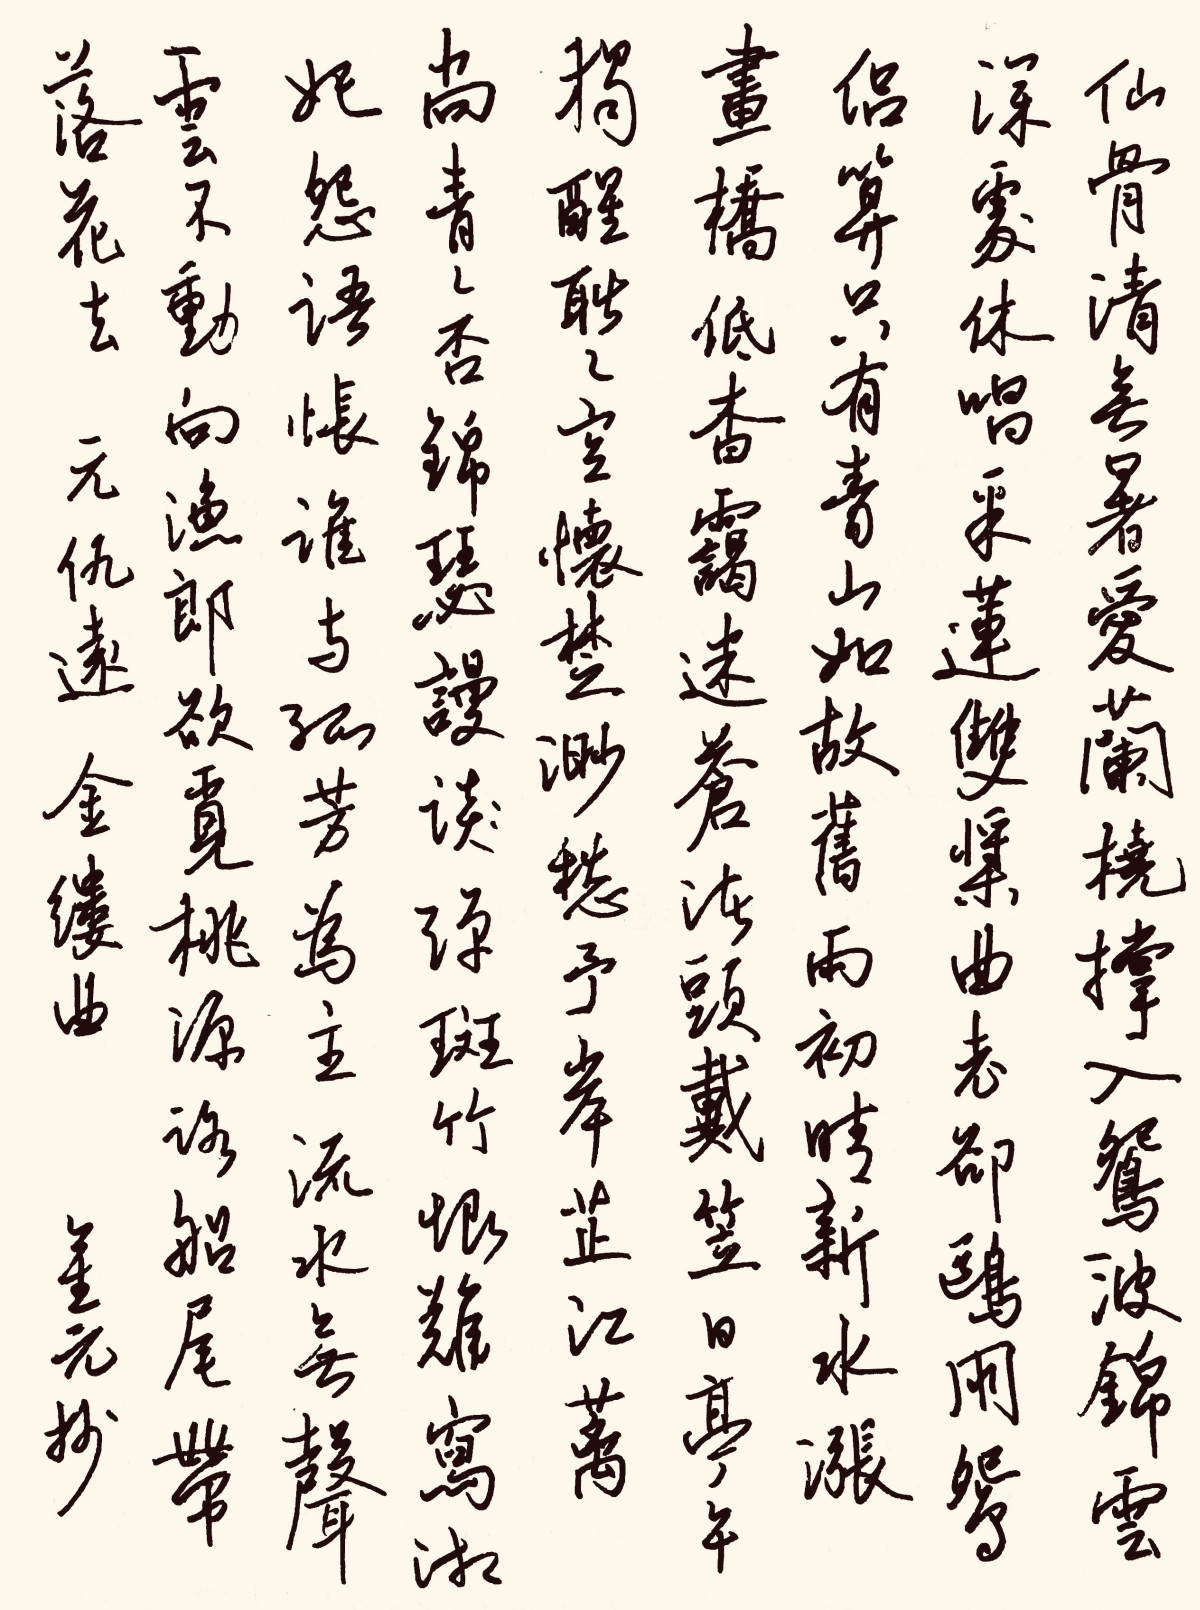 仙骨清無暑愛蘭橈撐入鴛波錦雲
深處休唱采蓮雙槳曲老卻鷗朋鴛
侶算只有青山如故舊雨初晴新水漲
畫橋低杳靄迷蒼渚頭戴笠日亭午
獨醒耿〻空懷楚渺愁予岸芷江蓠
尚青〻否錦瑟謾談彈斑竹恨難寫湘
妃怨語悵誰与孤芳為主流水無聲
雲不動向漁郎欲覓桃源路船尾帶
落花去 元仇遠 金縷曲 金元抄